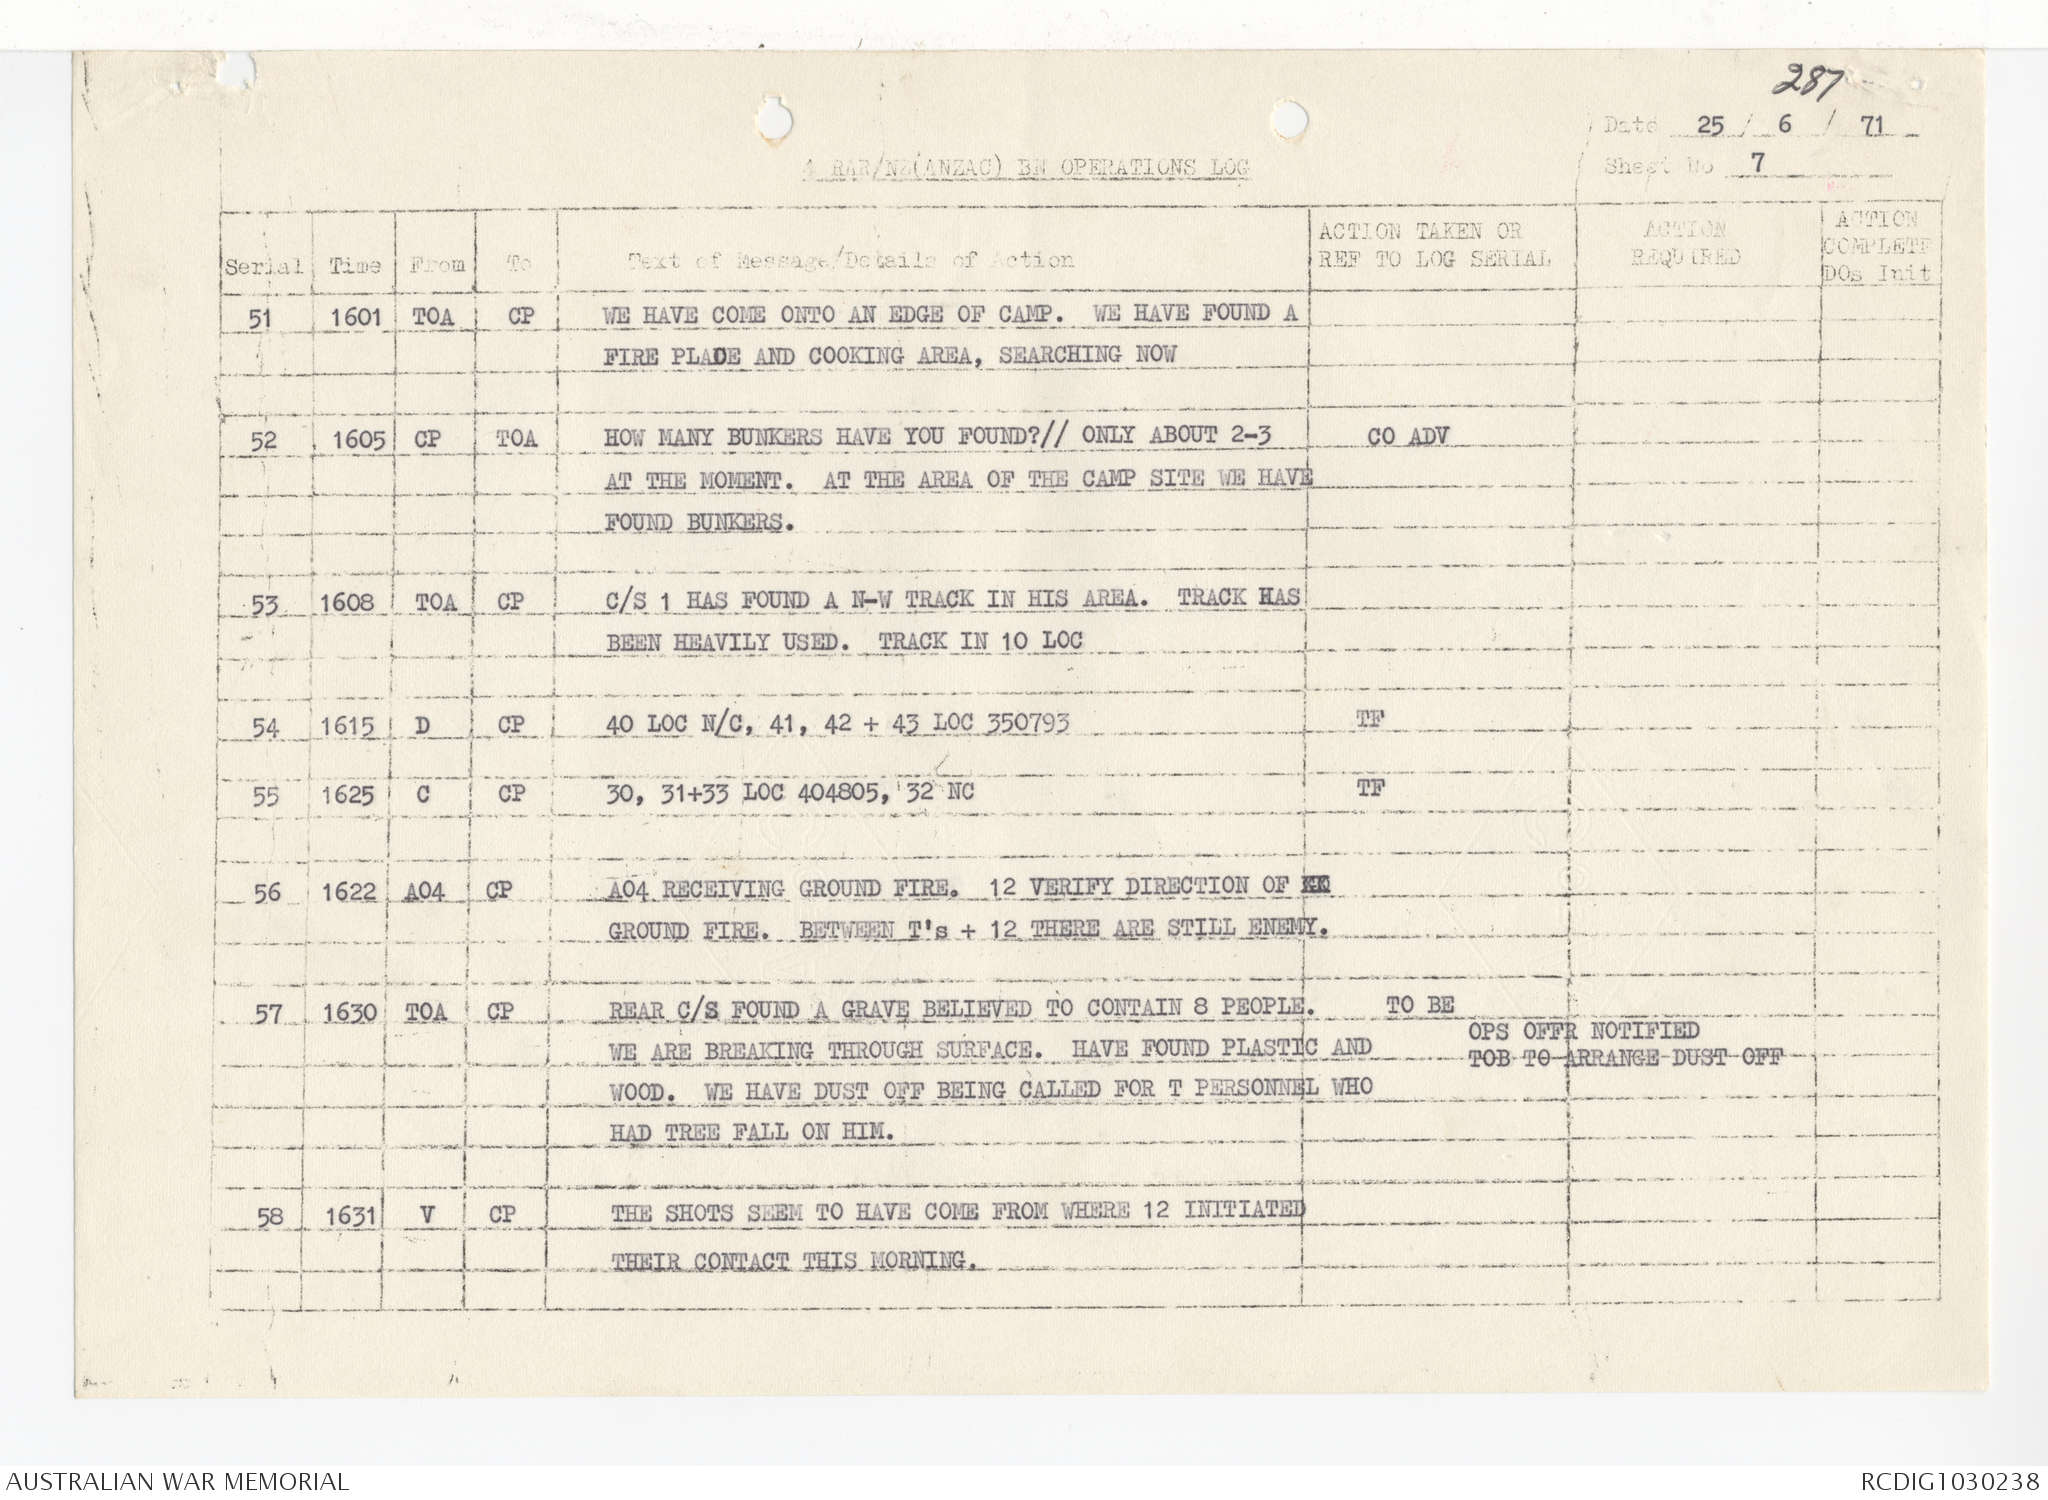 287
Date 25 / 6 / 71
4 RAR/NZ(ANZAC) BN OPERATIONS LOG
Sheet No 7
Serial Time From To Text of Message/Details of Action ACTION TAKEN OR REF TO LOG SERIAL ACTION REQUIRED ACTION COMPLETE DOs Init
51 1601 TOA CP WE HAVE COME ONTO AN EDGE OF CAMP. WE HAVE FOUND A
FIRE PLACE AND COOKING AREA, SEARCHING NOW
52 1605 CP TOA HOW MANY BUNKERS HAVE YOU FOUND?// ONLY ABOUT 2-3 CO ADV
AT THE MOMENT. AT THE AREA OF THE CAMP SITE WE HAVE
FOUND BUNKERS.
53 1608 TOA CP C/S 1 HAS FOUND A N-W TRACK IN HIS AREA. TRACK HAS
BEEN HEAVILY USED. TRACK IN 10 LOC
54 1615 D CP 40 LOC N/C, 41, 42 + 43 LOC 350793 TF
55 1625 C CP 30, 31+33 LOC 404805, 32 NC TF
56 1622 A04 CP A04 RECEIVING GROUND FIRE. 12 VERIFY DIRECTION OF
GROUND FIRE. BETWEEN T's + 12 THERE ARE STILL ENEMY.
57 1630 TOA CP REAR C/S FOUND A GRAVE BELIEVED TO CONTAIN 8 PEOPLE. TO BE
OPS OFFR NOTIFIED
WE ARE BREAKING THROUGH SURFACE. HAVE FOUND PLASTIC AND
TOB TO ARRANGE DUST OFF
WOOD. WE HAVE DUST OFF BEING CALLED FOR T PERSONNEL WHO
HAD TREE FALL ON HIM.
58 1631 V CP THE SHOTS SEEM TO HAVE COME FROM WHERE 12 INITIATED
THEIR CONTACT THIS MORNING.
AUSTRALIAN WAR MEMORIAL RCDIG1030238